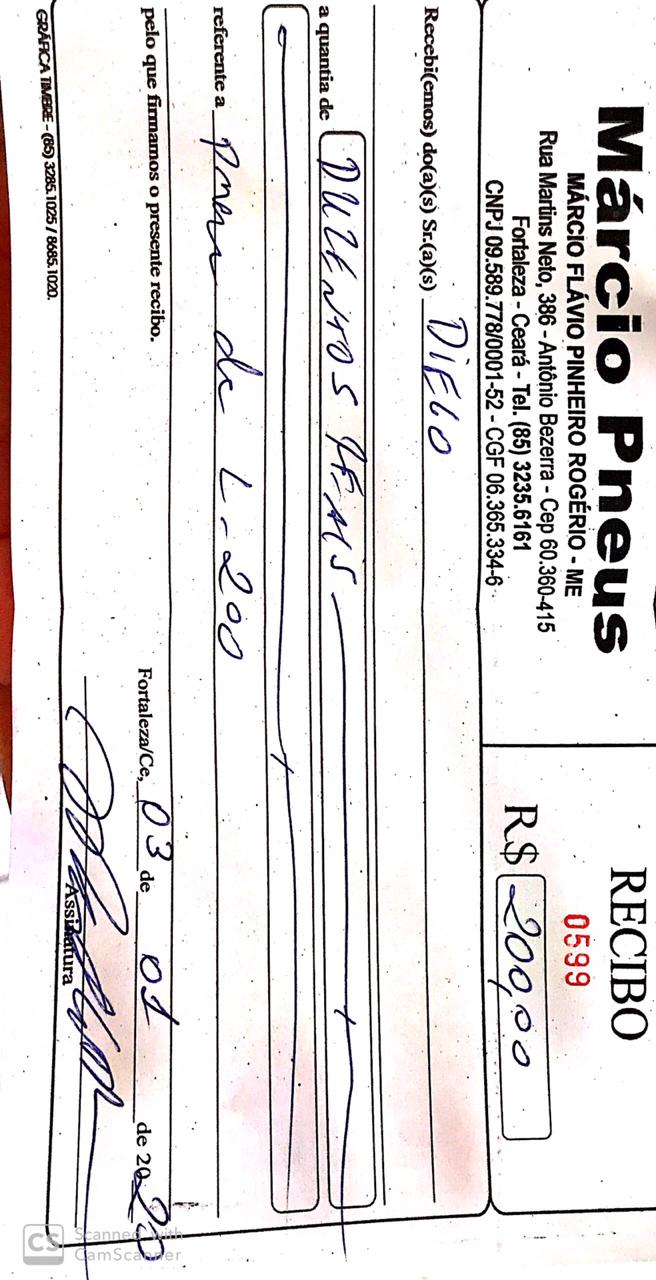 Márcio Pneus
MÁRCIO FLÁVIO PINHEIRO ROGÉRIO - ME
Rua Martins Neto, 386 - Antônio Bezerra - Cep 60.360-415
Fortaleza - Ceará - Tel. (85) 3235.6161
CNPJ 09.589.778/0001-52 - CGF 06.365.334-6
RECIBO
0599
R$ 200,00
Recebi(emos) do(a)(s) Sr.(a)(s) DiEGO
a quantia de DUZENTOS REAIS
referente a Pneu de L-200
pelo que firmamos o presente recibo.
Fortaleza/Ce, 03 de 01 de 2020
Assinatura
GRÁFICA TIMBRE - (85) 3285.1025 / 8685.1020.
CS Scanned with
CamScanner